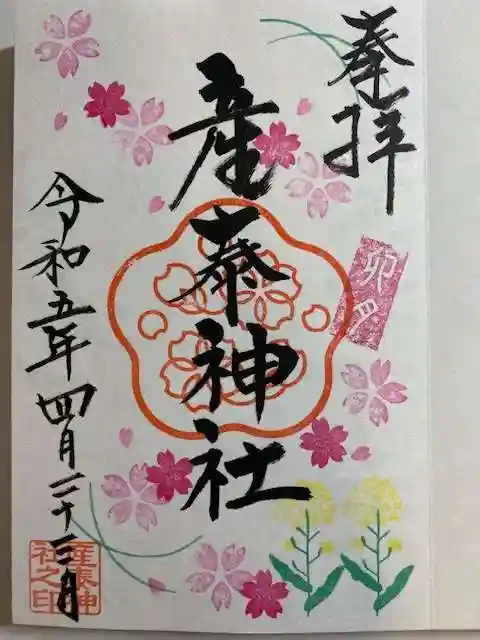 奉拝
卯月
産泰神社
令和五年四月二十三日
産泰神社之印